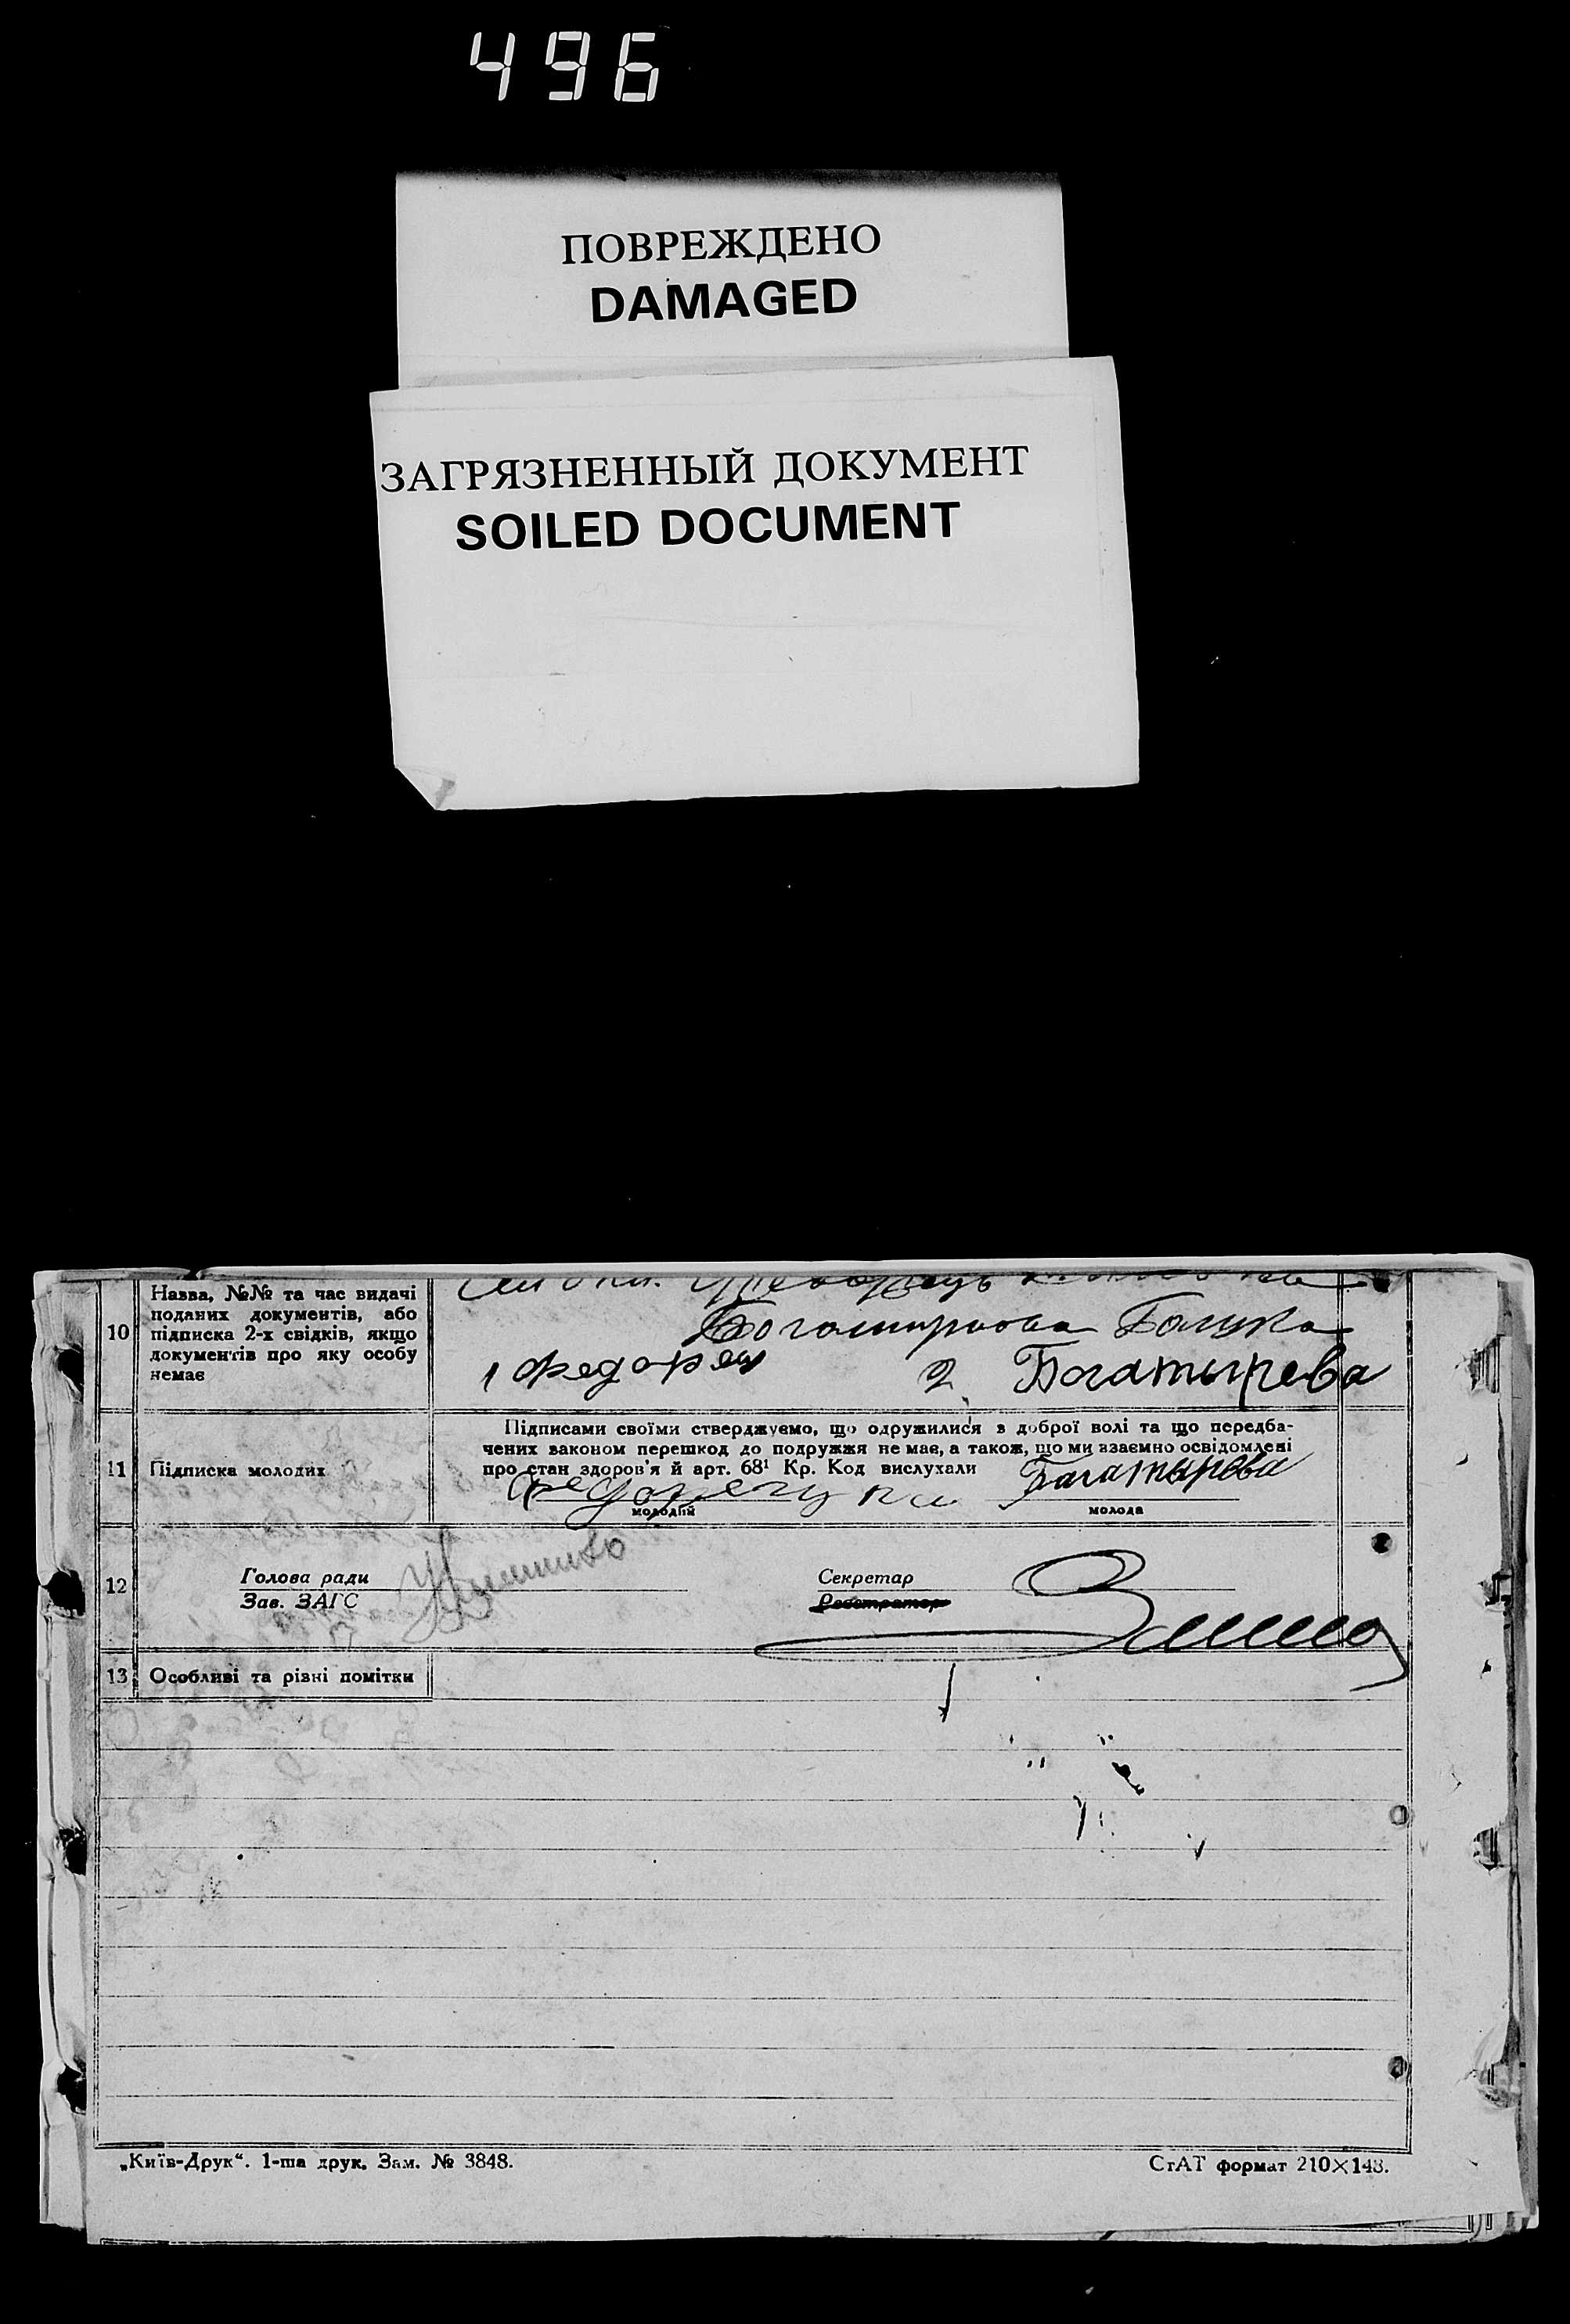 496
ПОВРЕЖДЕНО
DAMAGED
ЗАГРЯЗНЕННЫЙ ДОКУМЕНТ
SOILED DOCUMENT
10
Назва, №№ та час видачі
поданих документів, або
підписка 2-х свідків, якщо
документів про яку особу
немає
1 Федорец 2. Богатырева
11
Підписка молодих
Підписами своїми стверджуємо, що одружилися з доброї волі та що передба-
чених законом перешкод до подружжя не має, а також, що ми взаємно освідомлені
про стан здоров'я й арт. 68¹ Кр. Код вислухали
Багатырева
молодий молода
12
Голова ради
Зав. ЗАГС
Секретар
Реєстратор
13 Особливі та різні помітки
„Київ-Друк“. 1-ша друк. Зам. № 3848.
СтАТ формат 210×148.